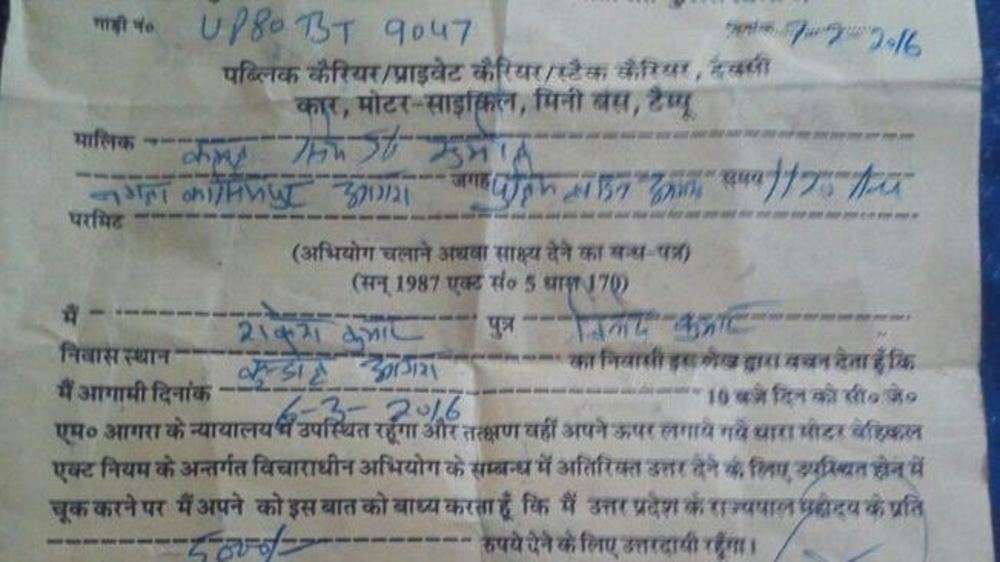 गाड़ी नं० UP80 BT 9047 7-2-2016
पब्लिक कैरियर/प्राइवेट कैरियर/स्टैक कैरियर, टैक्सी
कार, मोटर-साइकिल, मिनी बस, टैम्पू
मालिक
जगह समय 1120
परमिट
(अभियोग चलाने अथवा साक्ष्य देने का बन्ध-पत्र)
(सन् 1987 एक्ट सं० 5 धारा 170)
मैं राकेश कुमार पुत्र विनोद कुमार
निवास स्थान आगरा का निवासी इस लेख द्वारा वचन देता हूँ कि
मैं आगामी दिनांक 6-3-2016 10 बजे दिन को सी० जे०
एम० आगरा के न्यायालय में उपस्थित रहूँगा और तत्क्षण वहीं अपने ऊपर लगाये गये धारा मोटर वेहिकल
एक्ट नियम के अन्तर्गत विचाराधीन अभियोग के सम्बन्ध में अतिरिक्त उत्तर देने के लिए उपस्थित होने में
चूक करने पर मैं अपने को इस बात को बाध्य करता हूँ कि मैं उत्तर प्रदेश के राज्यपाल महोदय के प्रति
5000/- रुपये देने के लिए उत्तरदायी रहूँगा।